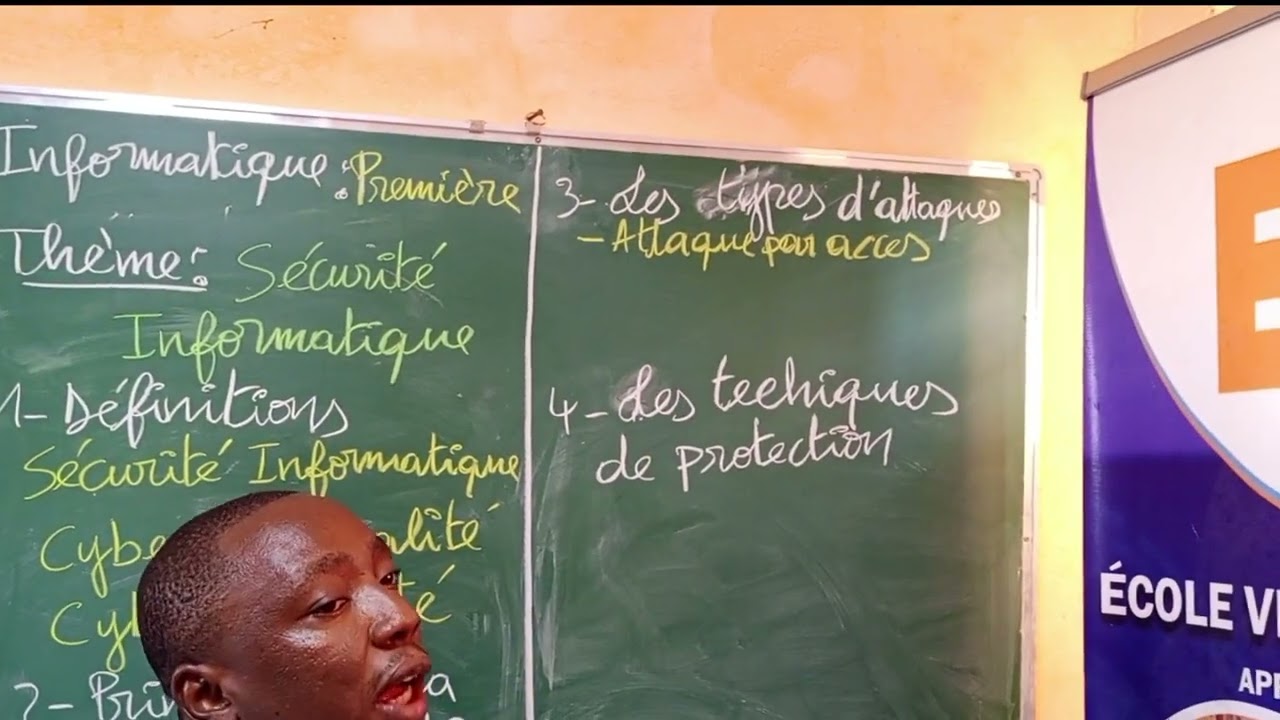 Informatique : Première
Thème : Sécurité
Informatique
1- Définitions
Sécurité Informatique
3- Les types d'attaques
- Attaque par acces
4- Les techiques
de protection
E
ÉCOLE